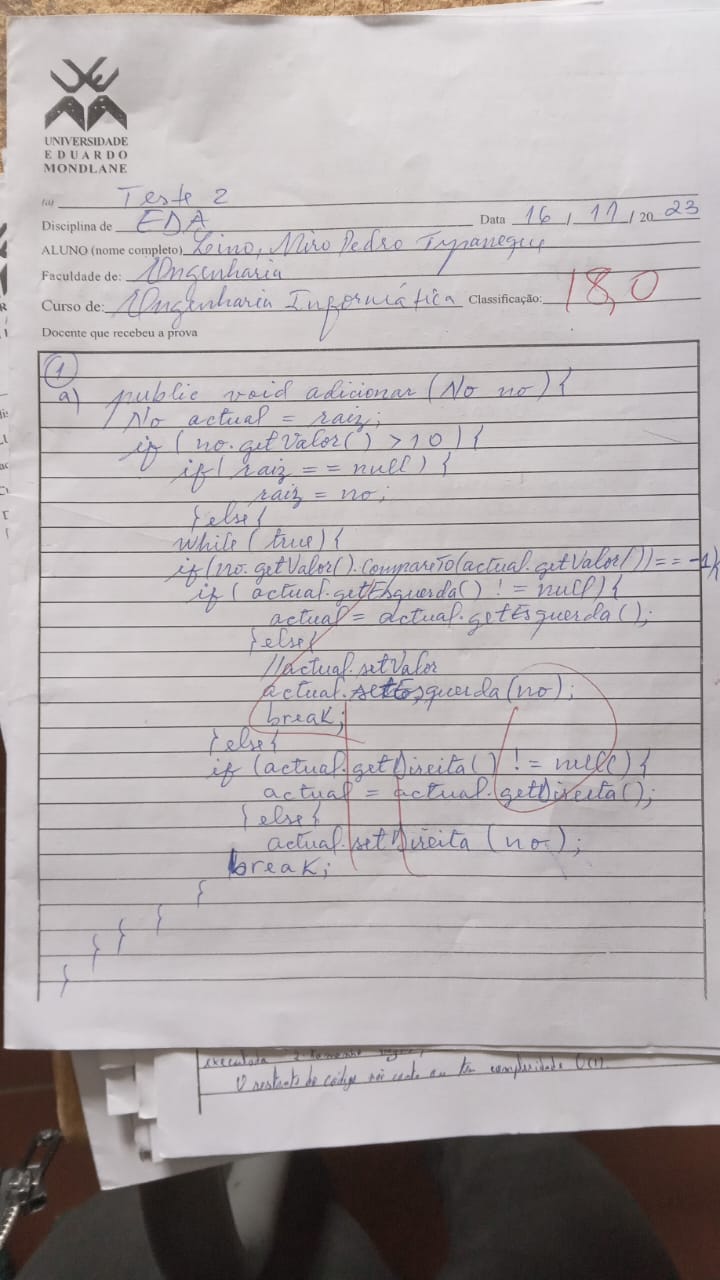 UNIVERSIDADE
EDUARDO
MONDLANE
(a) Teste 2
Disciplina de EDA Data 16 / 11 / 2023
ALUNO (nome completo) Zino, Miro Pedro
Faculdade de: Engenharia
Curso de: Engenharia Informática Classificação: 18,0
Docente que recebeu a prova
1
a) public void adicionar (No no) {
No actual = raiz;
if ( no.getValor() > 10 ) {
if ( raiz == null) {
raiz = no;
} else {
while (true) {
if (no.getValor().CompareTo(actual.getValor()) == -1){
if ( actual.getEsquerda() != null) {
actual = actual.getEsquerda();
} else {
//actual.setValor
actual.setEsquerda(no);
break;
} else {
if (actual.getDireita() != null) {
actual = actual.getDireita();
} else {
actual.setDireita (no);
break;
}
}
}
}
}
executada
O restante do código não conta ou tem complexidade O(1).